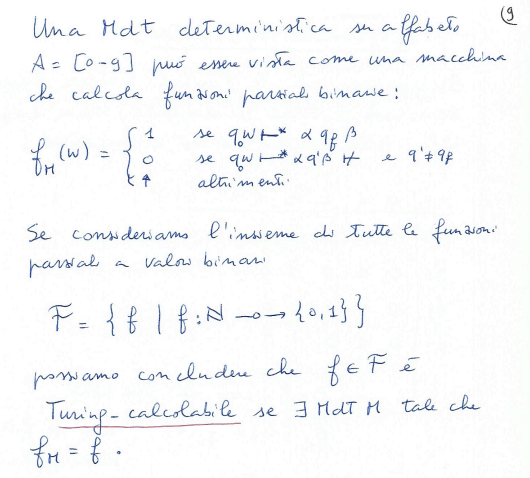 9
Una MdT deterministica su alfabeto
A = [0-9] può essere vista come una macchina
che calcola funzioni parziali binarie:
f_M(w) = { 1 se q₀w ⊢* α q_f β
0 se q₀w ⊢* α q' β ⊬ e q' ≠ q_f
↑ altrimenti.
Se consideriamo l'insieme di tutte le funzioni
parziali a valori binari
F = { f | f : ℕ —o→ {0,1} }
possiamo concludere che f ∈ F è
Turing-calcolabile se ∃ MdT M tale che
f_M = f.